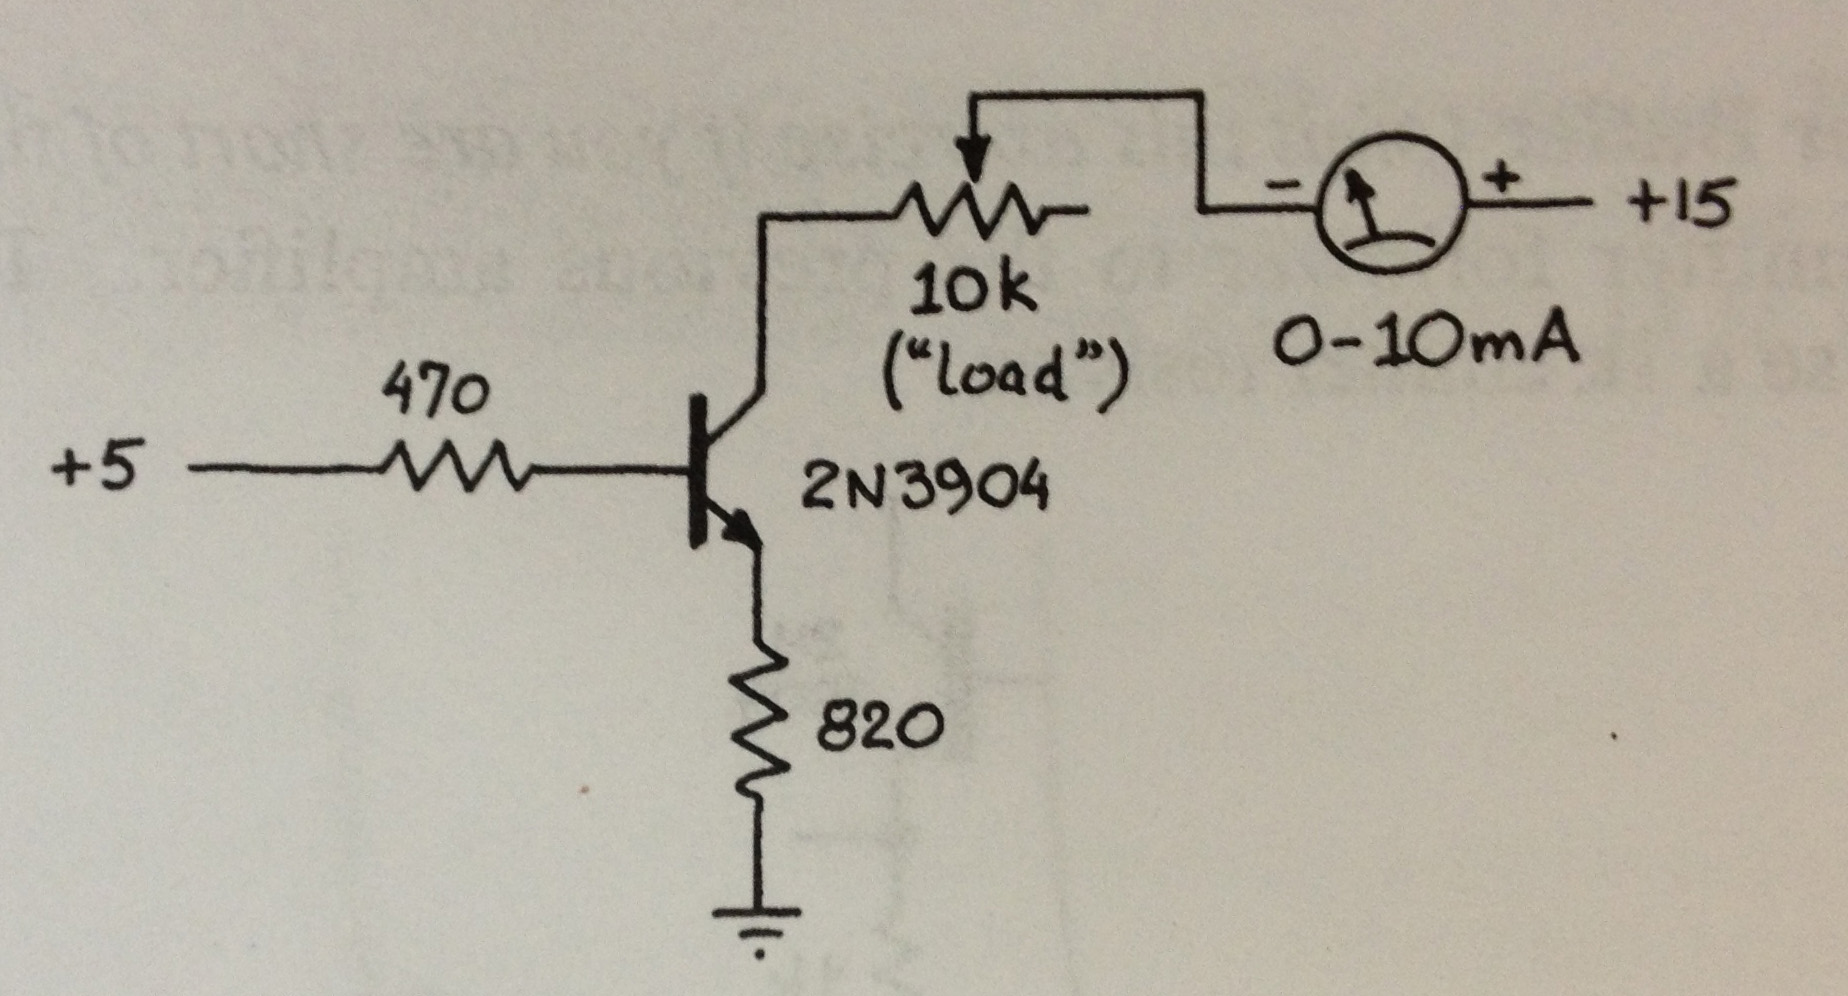 +15
10k
("load")
0-10mA
470
+5
2N3904
820